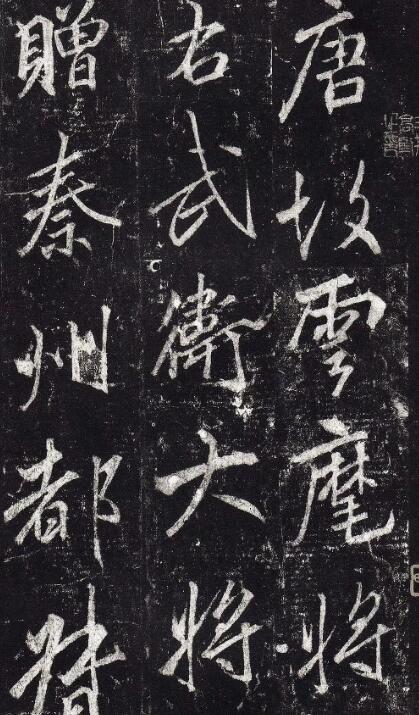 唐故雲麾將
右武衛大將
贈秦州都督